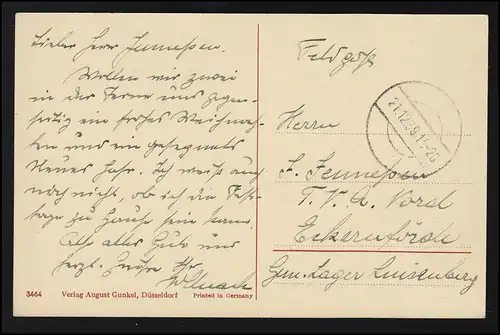 Lieber Herr Jennessen.
Wollen wir zwei
in der Ferne uns gegen-
seitig ein frohes Weihnach-
ten und ein gesegnetes
Neues Jahr. Ich weiß auch
noch nicht, ob ich die Fest-
tage zu Hause sein kann
Also alles Gute und
herzl. Grüße Ihr
Feldpost
21.12.39.17-20
Herrn
F. Jennessen
T. V. A. Nord
Eckernförde
Gem. Lager Luisenberg
3464 Verlag August Gunkel, Düsseldorf Printed in Germany